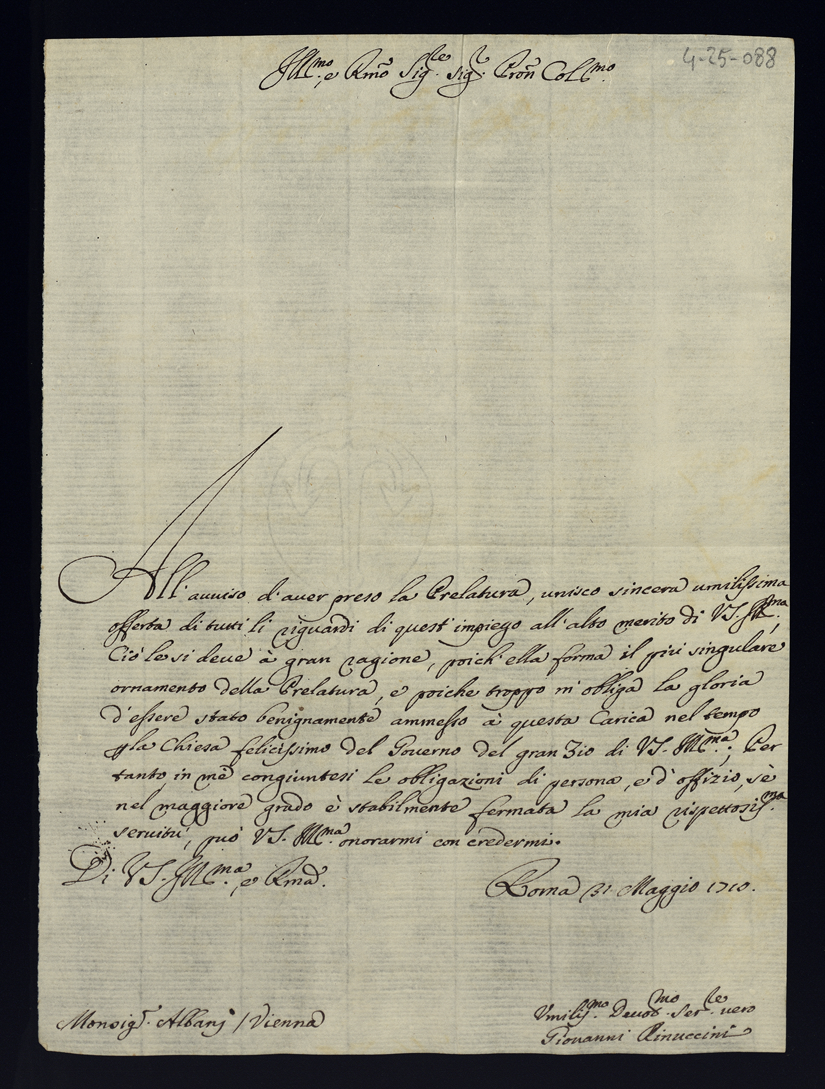 4-25-088
Ill.mo, e Rmo Sig.re Sig.r Pron Col.mo
All'auuiso d'auer preso la Prelatura, unisco sincera umilissima
offerta di tutti li riguardi di quest'impiego all'alto merito di VS. Ill.ma,
Ciò le si deue à gran ragione, poich'ella forma il più singulare
ornamento della Prelatura, e poiche troppo m'obliga la gloria
d'essere stato benignamente ammesso à questa Carica nel tempo
p la Chiesa felicissimo del Gouerno del gran Zio di VS. Ill.ma; Per
tanto in mè congiuntesi le obligazioni di persona, e d'offizio, sè
nel maggiore grado è stabilmente fermata la mia rispettosis.ma
seruitù, può VS. Ill.ma onorarmi con credermi.
Di VS. Ill.ma, e Rma.
Roma 31 Maggio 1710.
Monsig.r Albanj / Vienna
Vmilis.mo Deuot.mo Ser.re uero
Giouanni Rinuccini